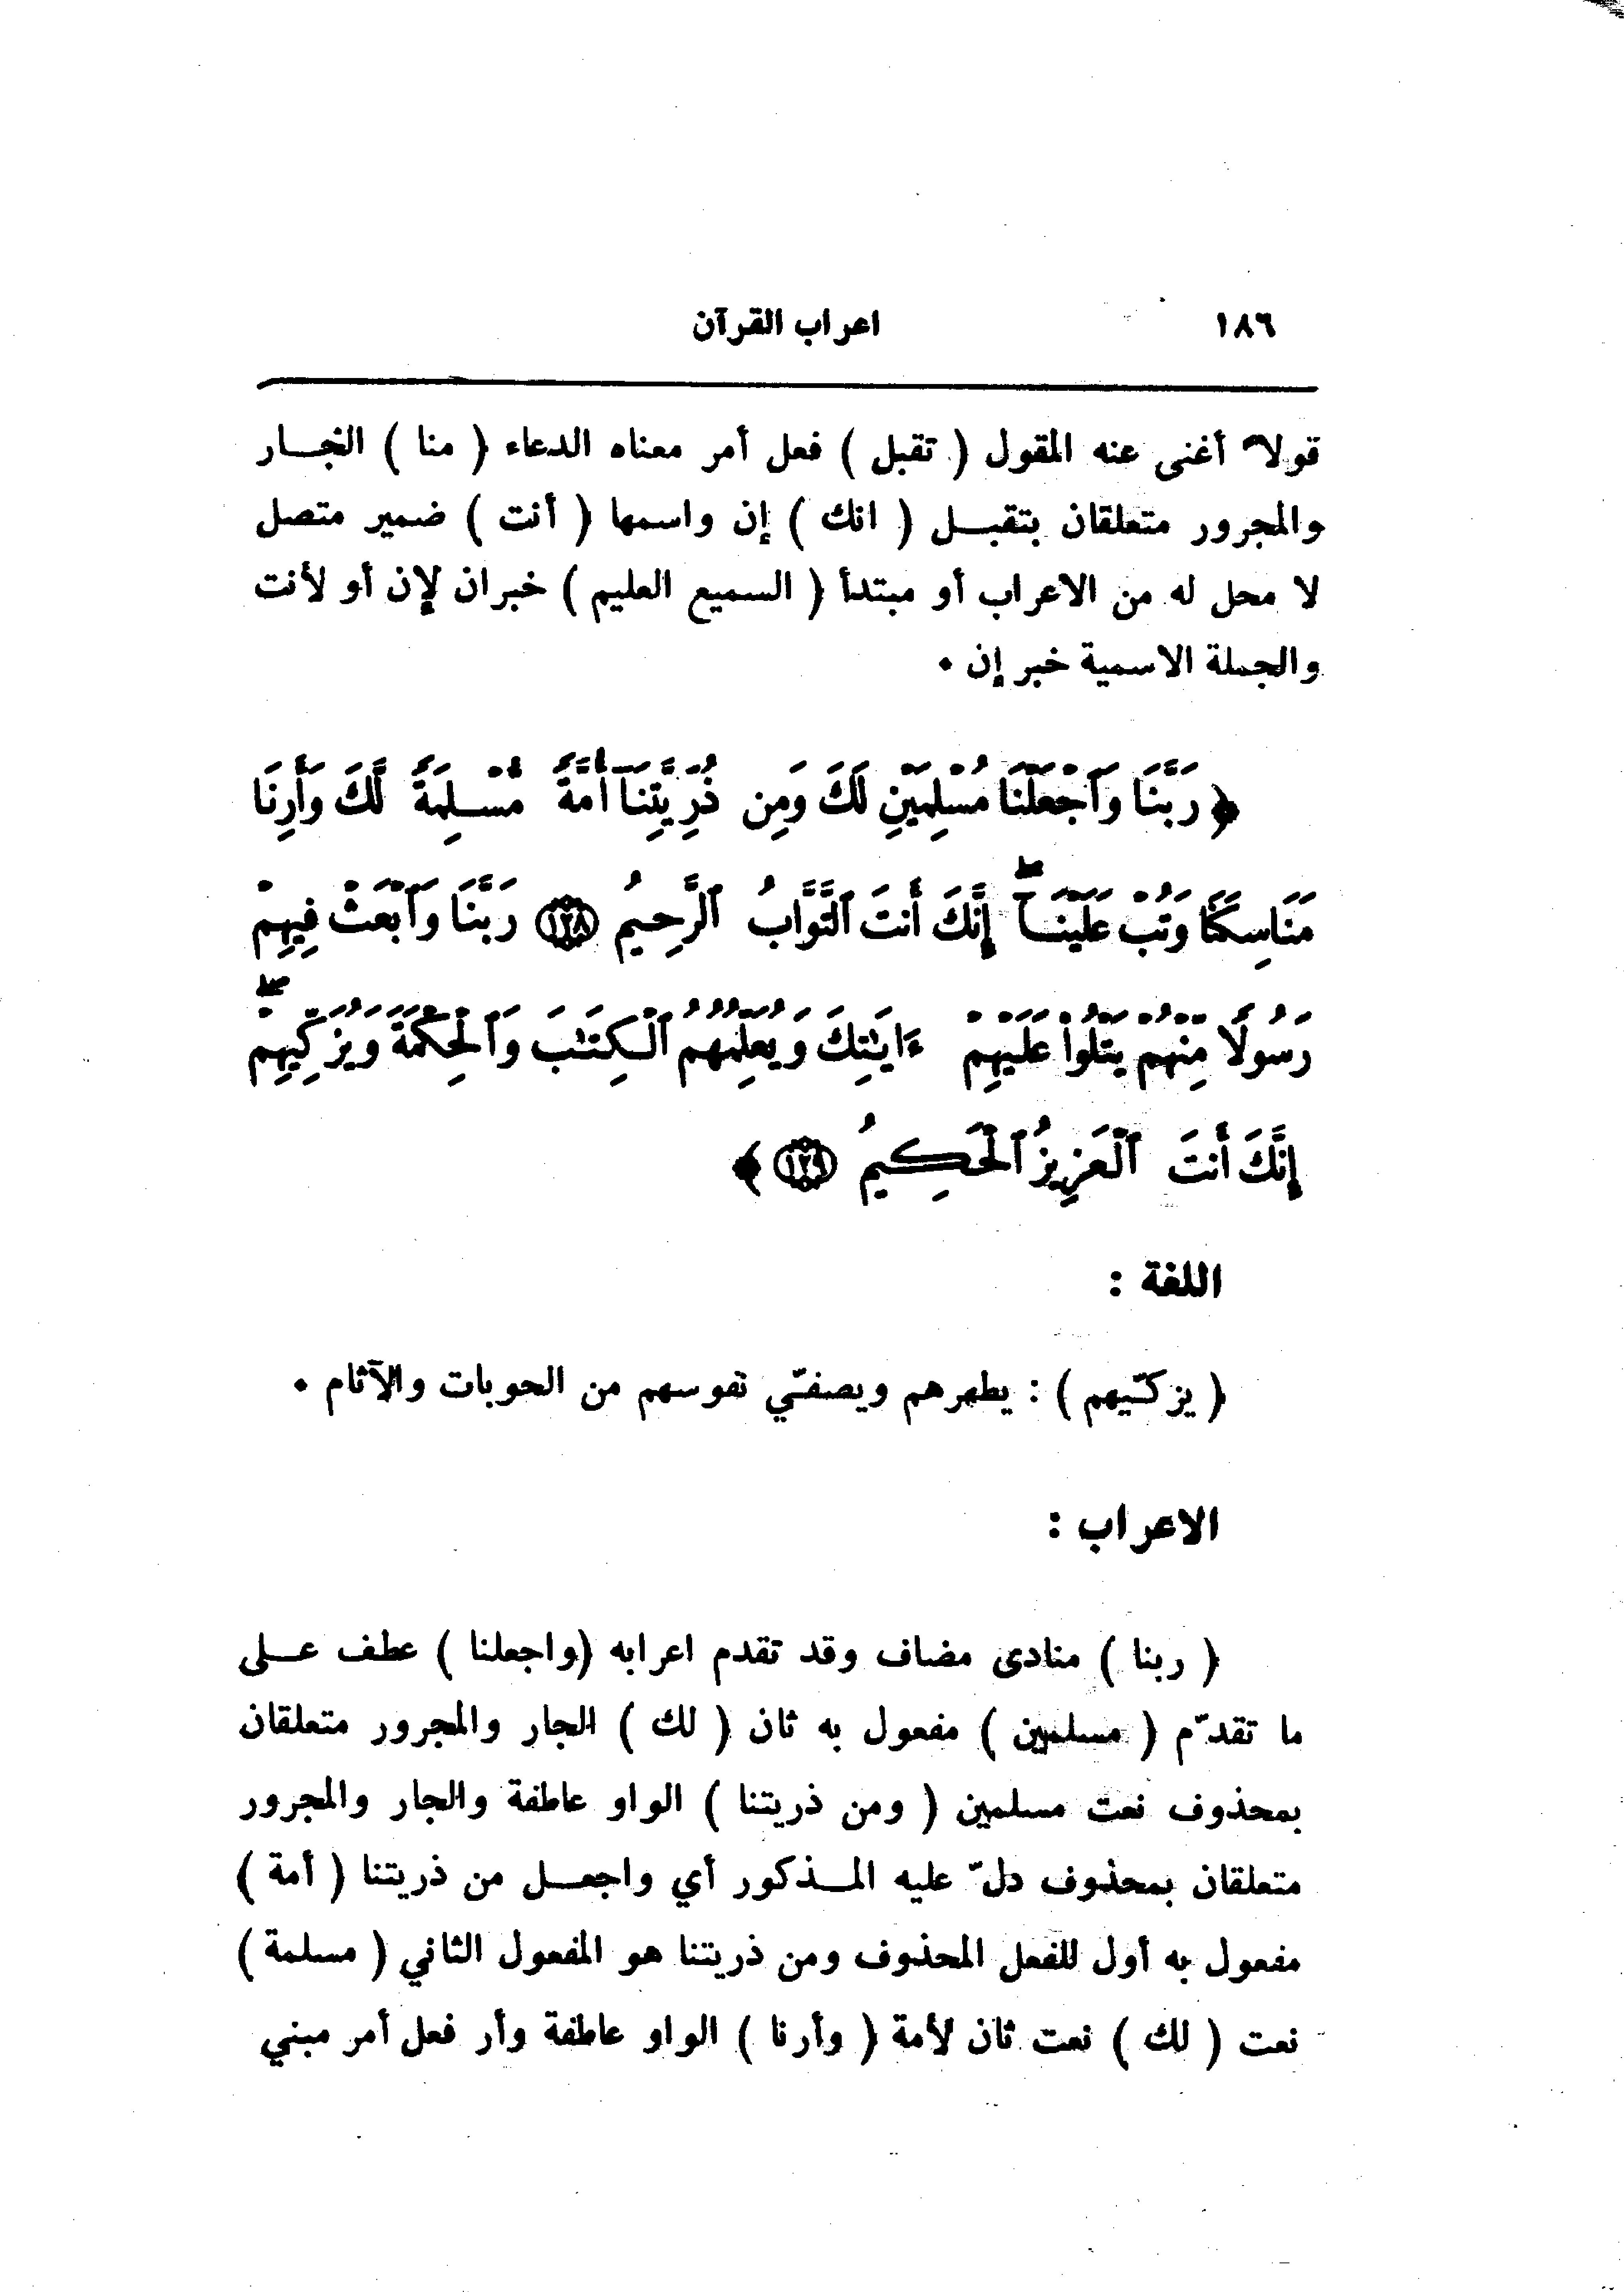 ١٨٦ اعراب القرآن
قولاً أغنى عنه المقول ( تقبل ) فعل أمر معناه الدعاء ( منا ) الجار
والمجرور متعلقان بتقبل ( انك ) إن واسمها ( أنت ) ضمير متصل
لا محل له من الاعراب أو مبتدأ ( السميع العليم ) خبران لإن أو لأنت
والجملة الاسمية خبر إن ٠
﴿ رَبَّنَا وَٱجْعَلْنَا مُسْلِمَيْنِ لَكَ وَمِن ذُرِّيَّتِنَآ أُمَّةً مُّسْلِمَةً لَّكَ وَأَرِنَا
مَنَاسِكَنَا وَتُبْ عَلَيْنَآ ۖ إِنَّكَ أَنتَ ٱلتَّوَّابُ ٱلرَّحِيمُ ١٢٨ رَبَّنَا وَٱبْعَثْ فِيهِمْ
رَسُولًا مِّنْهُمْ يَتْلُوا۟ عَلَيْهِمْ ءَايَـٰتِكَ وَيُعَلِّمُهُمُ ٱلْكِتَـٰبَ وَٱلْحِكْمَةَ وَيُزَكِّيهِمْ ۖ
إِنَّكَ أَنتَ ٱلْعَزِيزُ ٱلْحَكِيمُ ١٢٩ ﴾
اللغة :
( يزكّيهم ) : يطهرهم ويصفّي نفوسهم من الحوبات والآثام ٠
الاعراب :
( ربنا ) منادى مضاف وقد تقدم اعرابه (واجعلنا ) عطف على
ما تقدّم ( مسلمين ) مفعول به ثان ( لك ) الجار والمجرور متعلقان
بمحذوف نعت مسلمين ( ومن ذريتنا ) الواو عاطفة والجار والمجرور
متعلقان بمحذوف دلّ عليه المذكور أي واجعل من ذريتنا ( أمة )
مفعول به أول للفعل المحذوف ومن ذريتنا هو المفعول الثاني ( مسلمة )
نعت ( لك ) نعت ثان لأمة ( وأرنا ) الواو عاطفة وأر فعل أمر مبني